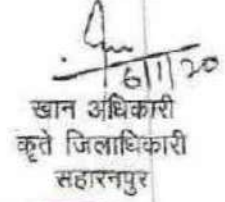 6/1/20
खान अधिकारी
कृते जिलाधिकारी
सहारनपुर